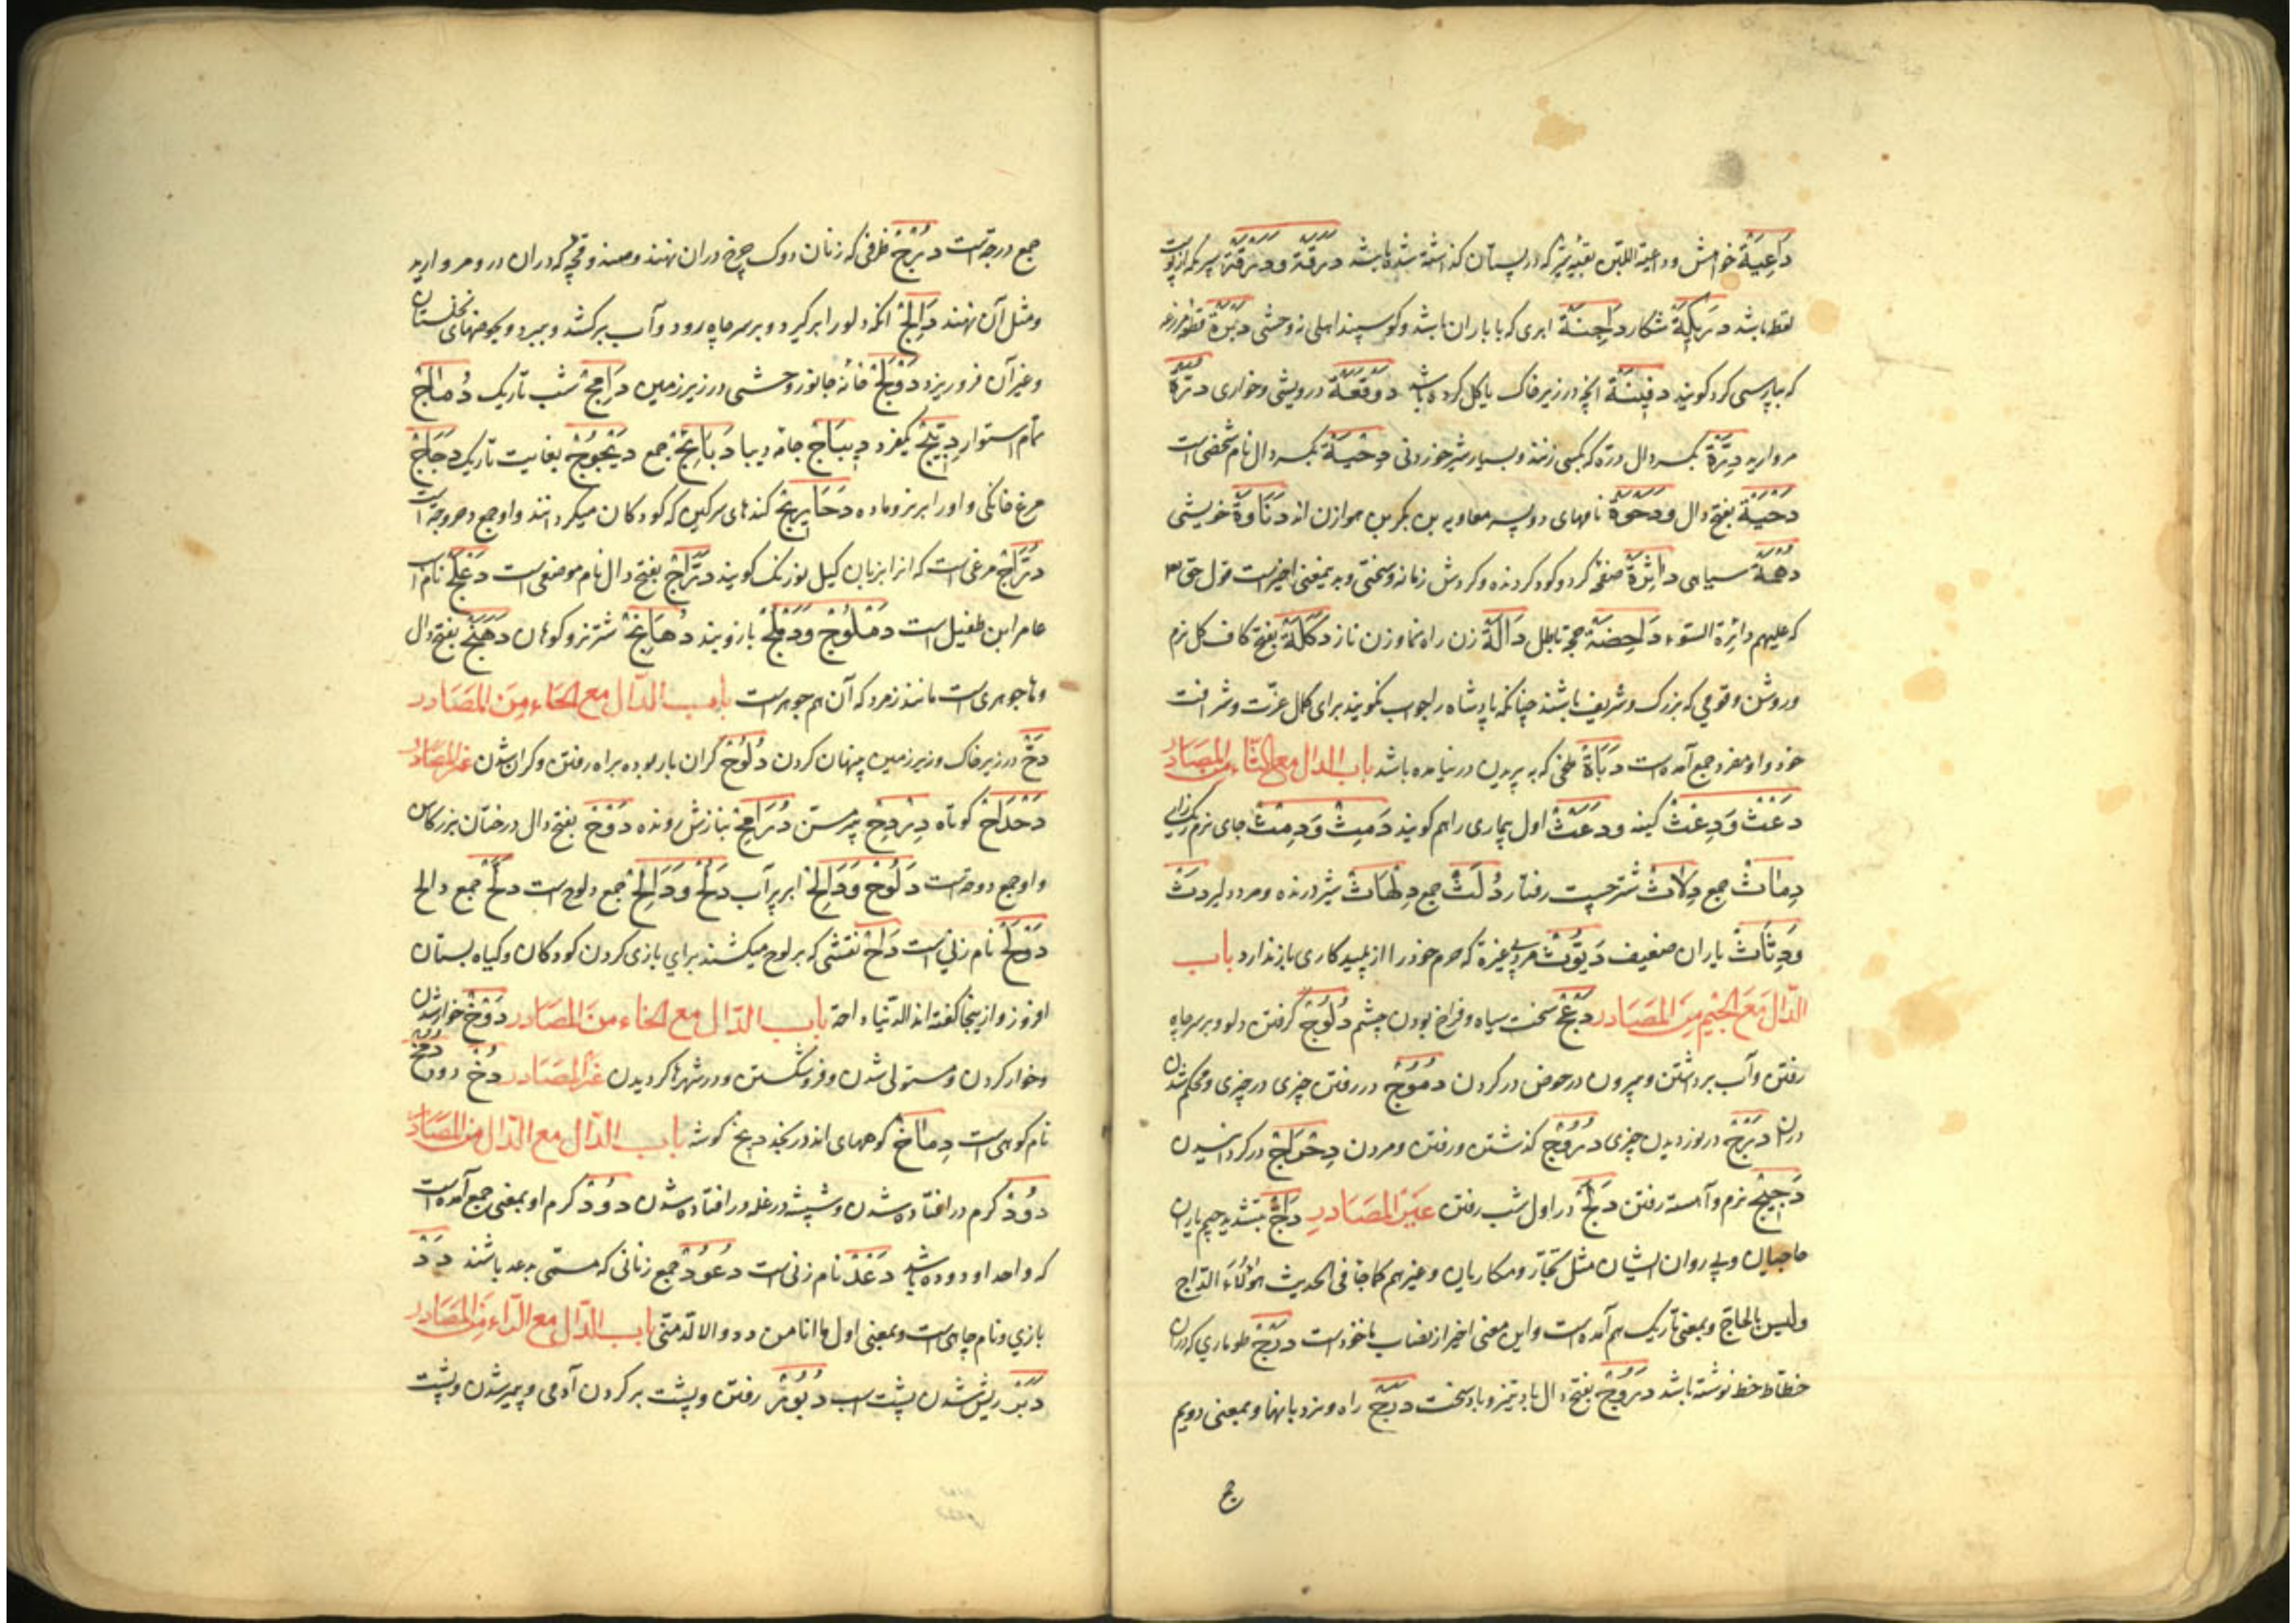 دَاعِيَة خواهش و داعية اللبن بقیه شیر که در پستان کذاشته شده باشد دَرَقَة و دَرَقَة سپر که از پوست
فقط باشد دَرِيكَة شکار دَاجِنَة ابری که با باران باشد و کوسپند اهلی نه وحشی دَبْرَة قطعه مزرعه
که بپارسی کرد کویند دَفِينَة آنچه در زیر خاک یا کل کرده باشد دَوْقَعَة درویشی و خواری دُرَّة
مروارید دِرَّة بکسر دال دره که بکسی زنند و بسیار شیر خوردنی دِحْيَة بکسر دال نام شخصی است
دَحْيَة بفتح دال و دَحْوَة نامهای دو پسر معاویه بن بکر بن هوازن اند دَنَاوَة خویشی
دُهْمَة سیاهی دَائِرَة صفحه کرد و کود کردنده و کردش زمانه و سختی و بد بمعنی اخیر است قول حق تع
که علیهم دائرة السّوء دَاحِضَة حجة باطل دَالَّة زن راه نما و زن ناز دَكَلَة بفتح کاف کل نرم
و روشن و قومی که بزرک و شریف باشند چنانکه پادشاه را جواب نکویند برای کمال عزّت و شرافت
خود و او مفرد جمع آمده است دَبَاة ملخی که به پریدن در نیامده باشد باب الدال مع الثاء من المصادر
دَعْث وَدِعْث کینه و دَعَث اول بیماری را هم کویند دَمِيث وَدِمْث جای نرم ریک زای
دِمَاث جمع دِلَاث شتر چست رفتار دُلُث جمع دِلْهَاث شیر درنده و مرد دلیر دَثّ
وَدِثَاث باران ضعیف دَيُّوث مرد بی غیرة که حرم خود را از پلید کاری باز ندارد باب
الدّال مَعَ الجيم مِنَ المَصَادر دَعَج سخت سیاه و فراخ بودن چشم دُلُوج کرفتن دلو و بر سر چاه
رفتن و آب برداشتن و بیرون در حوض در کردن دُمُوج در رفتن چیزی در چیزی و محکم شدن
در آن دَرْج در نوردیدن چیزی دُرُوج کذشتن و رفتن و مردن دِحْرَاج در کردانیدن
دَجِيج نرم و آهسته رفتن دَلَج در اول شب رفتن غير المصادر دَاجّ بتشدید جیم یاران
حاجیان و پی روان ایشان مثل تجّار و مکاریان و غیرهم کما جا فی الحدیث هٰؤلاء الدّاج
و لیس بالحاج و بمعنی تاریک هم آمده است و این معنی اخیر از نصاب ماخوذ است دَرْج طوماری که در آن
خطاط خط نوشته باشد دَرُوج بفتح دال باد تیز و باد سخت دَرَج راه و نردبانها و بمعنی دویم
ج
جمع درجة است دُرْج ظرفی که زنان دوک چرخ در آن نهند و صندوقچه که در آن در و مروارید
و مثل آن نهند دَالِج آنکه دلو را بر کیرد و بر سر چاه رود و آب بر کشد و ببرد و بحوضهای نخلستان
و غیر آن فرو ریزد دَوْلَج خانه جانور وحشی در زیر زمین دَامِج شب تاریک دُمَاج
تمام استوار دِبِّيج یکفرد دِيبَاج جامه دیبا دَبَابِيج جمع دَيْجُوج بغایت تاریک دَجَاج
مرغ خانکی و او را بر نر و ماده دَحَارِيج کندهای سرکین که کودکان میکردانند و او جمع دحروجة است
دُرَّاج مرغی است که آنرا بزبان کیل نورنک کویند دَرَّاج بفتح دال نام موضعی است دَعْلَج نام اسب
عامر ابن طفیل است دُمْلُوج وَدُمْلُج بازوبند دُهَانِج شتر نر دو کوهان دَهْنَج بفتح دال
و ها جوهری است مانند زمرد که آن هم جوهر است باب الدّال مع الحاء مِنَ المَصَادر
دَحّ در زیر خاک و زیر زمین پنهان کردن دُلُوح کران بار بوده براه رفتن و کران شدن غير المصادر
دَحْدَاح کوتاه دِرْدِح پیر مسن دُرَامِح بنازش رونده دَوْح بفتح دال درختان بزرکاس
و او جمع دوحة است دَلُوح وَدَالِح ابر پر آب دُلُح وَدَوَالِح جمع دلوح است دُلَّح جمع دالح
دَوْلَح نام زنی است دَاح نقشی که بر لوح میکشند برای بازی کردن کودکان و کیاه بستان
افروز و از اینجا کفته اند الدّنیا داحة باب الدّال مع الخاء من المصادر دَوْخ خوار شدن
و خوار کردن و مستولی شدن و فرو شکستن و در شهرها کردیدن غير المصادر دُخّ دود دَمْخ
نام کوهی است دِمَاخ کوههای اند در نجد دبخ کوشه باب الدّال مع الدّال من المصادر
دَوْد کرم در افتاده شدن و شپشه در غله در افتاده شدن دُود کرم او بمعنی جمع آمده است
که واحد او دوده باشد دَعْد نام زنی است دُعُود جمع زنانی که مسمّی بدعد باشند دَد
بازی و نام جاهی است و بمعنی اول ما انا من دد و لا الدّد منّی باب الدّال مع الرّاء من المصادر
دَبَر ریش شدن پشت اسب دُبُور رفتن و پشت بر کردن آدمی و پیر شدن و پشت